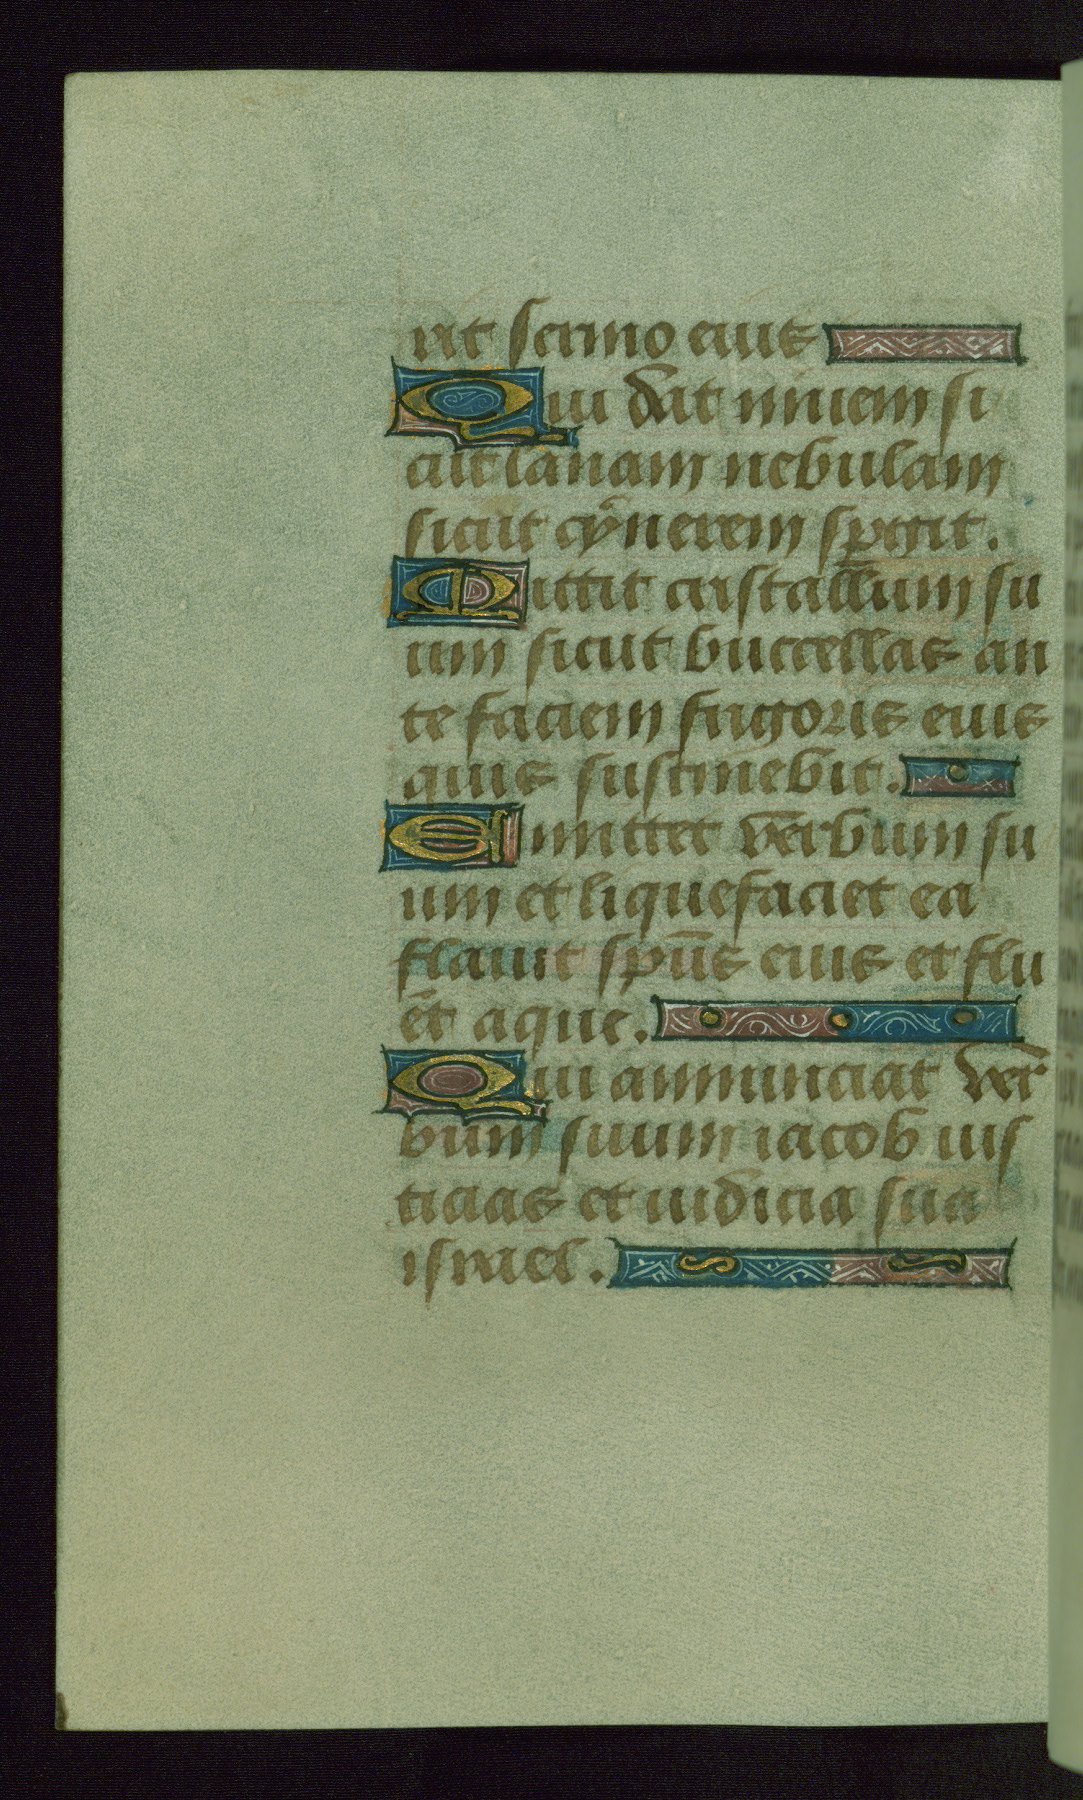 rit sermo eius
Qui dat niuem si
cut lanam nebulam
sicut cynerem spargit.
Mittit cristallum su
um sicut buccellas an
te faciem frigoris eius
quis sustinebit.
Emittet verbum su
um et liquefaciet ea
flauit spūs eius et flu
ēt aque.
Qui annunciat ver
bum suum iacob ius
ticias et iudicia sua
israel.